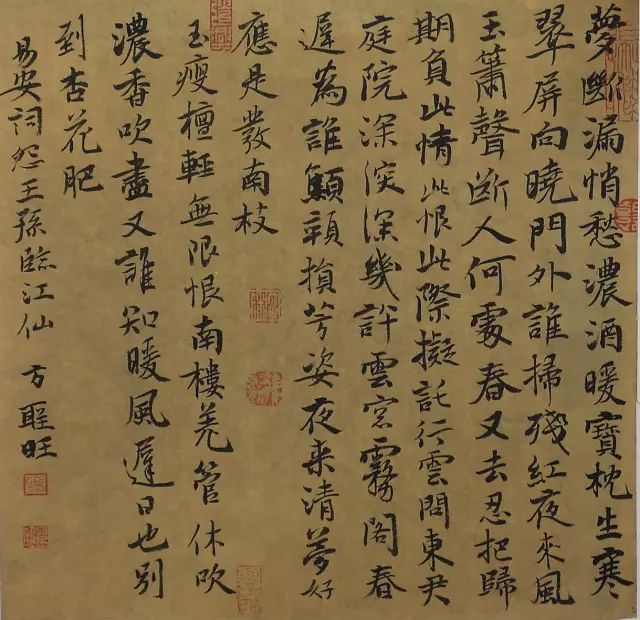 夢斷漏悄愁濃酒暖寶枕生寒
翠屏向曉門外誰掃殘紅夜來風
玉簫聲斷人何處春又去忍把歸
期負此情此恨此際擬託行雲問東君
庭院深深深幾許雲窓霧閣春
遲為誰顦顇損芳姿夜来清夢好
應是發南枝
玉瘦檀輕無限恨南樓羌管休吹
濃香吹盡又誰知暖風遲日也別
到杏花肥
易安詞怨王孫臨江仙 方旺